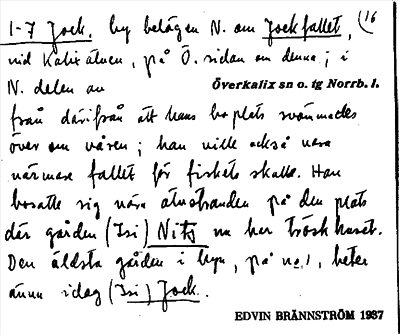 1-7 Jock. by belägen N. om Jockfallet, (16
vid Kalix älven, på Ö. sidan om denna; i
N. delen av Överkalix sn o. tg Norrb. l.
från därifrån att hans boplats svämmades
över om våren; han ville också vara
närmare fallet för fiskets skull. Han
bosatte sig nära älvstranden på den plats
där gården (Isi) Nits nu har tröskhuset.
Den äldsta gården i byn, på no 1, heter
ännu idag (Isi) Jock.
EDVIN BRÄNNSTRÖM 1937